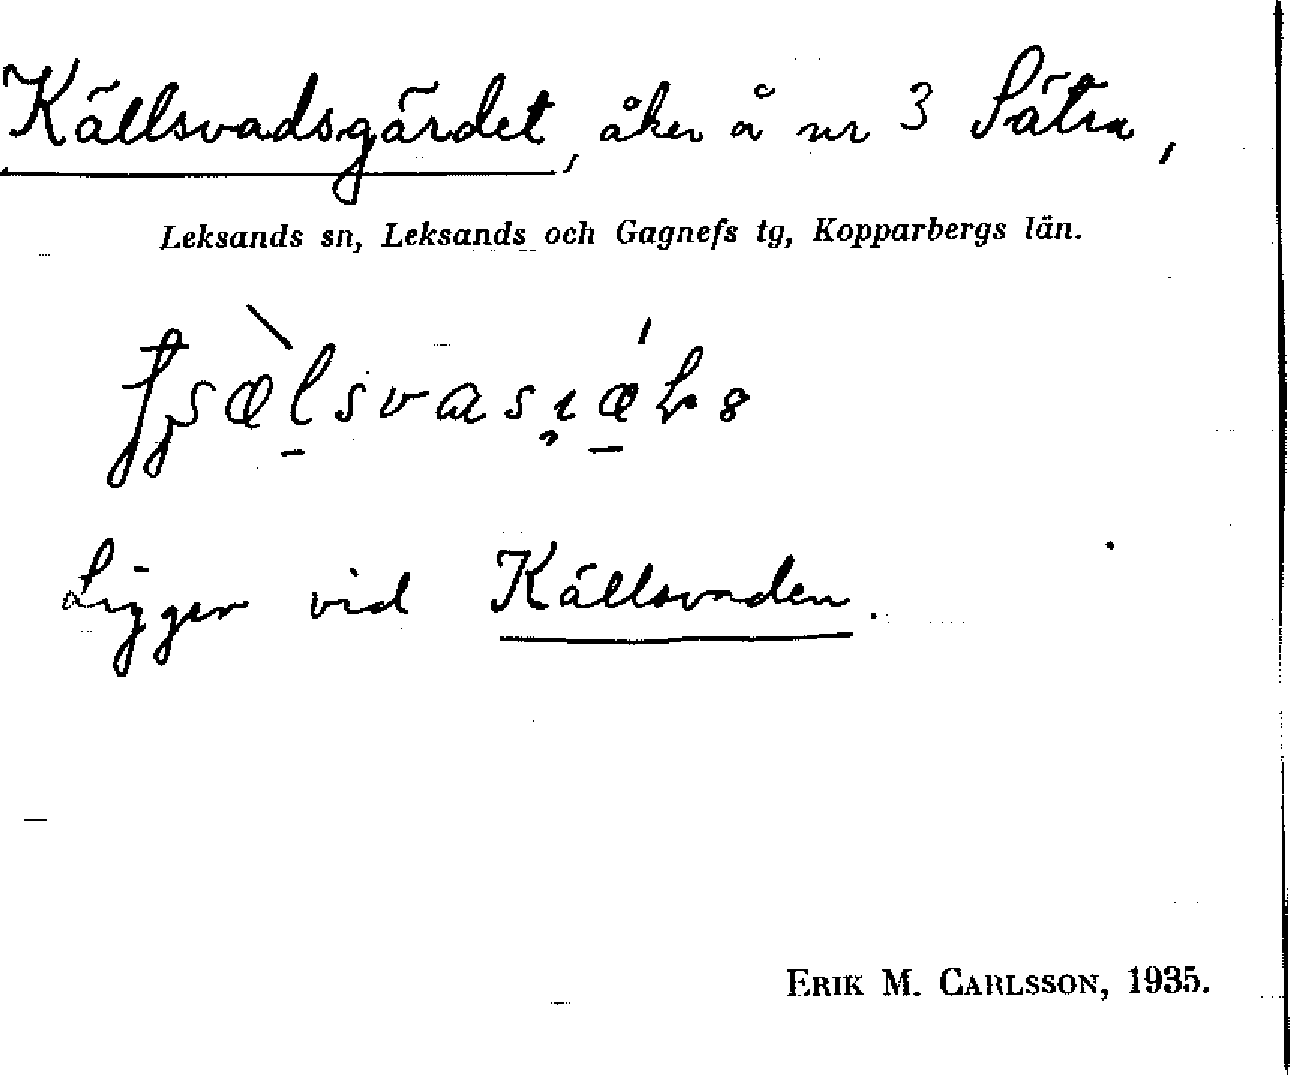 Källsvadsgärdet, åker å nr 3 Sätra,
Leksands sn, Leksands och Gagnefs tg, Kopparbergs län.
Ligger vid Källsvaden.
ERIK M. CARLSSON, 1935.